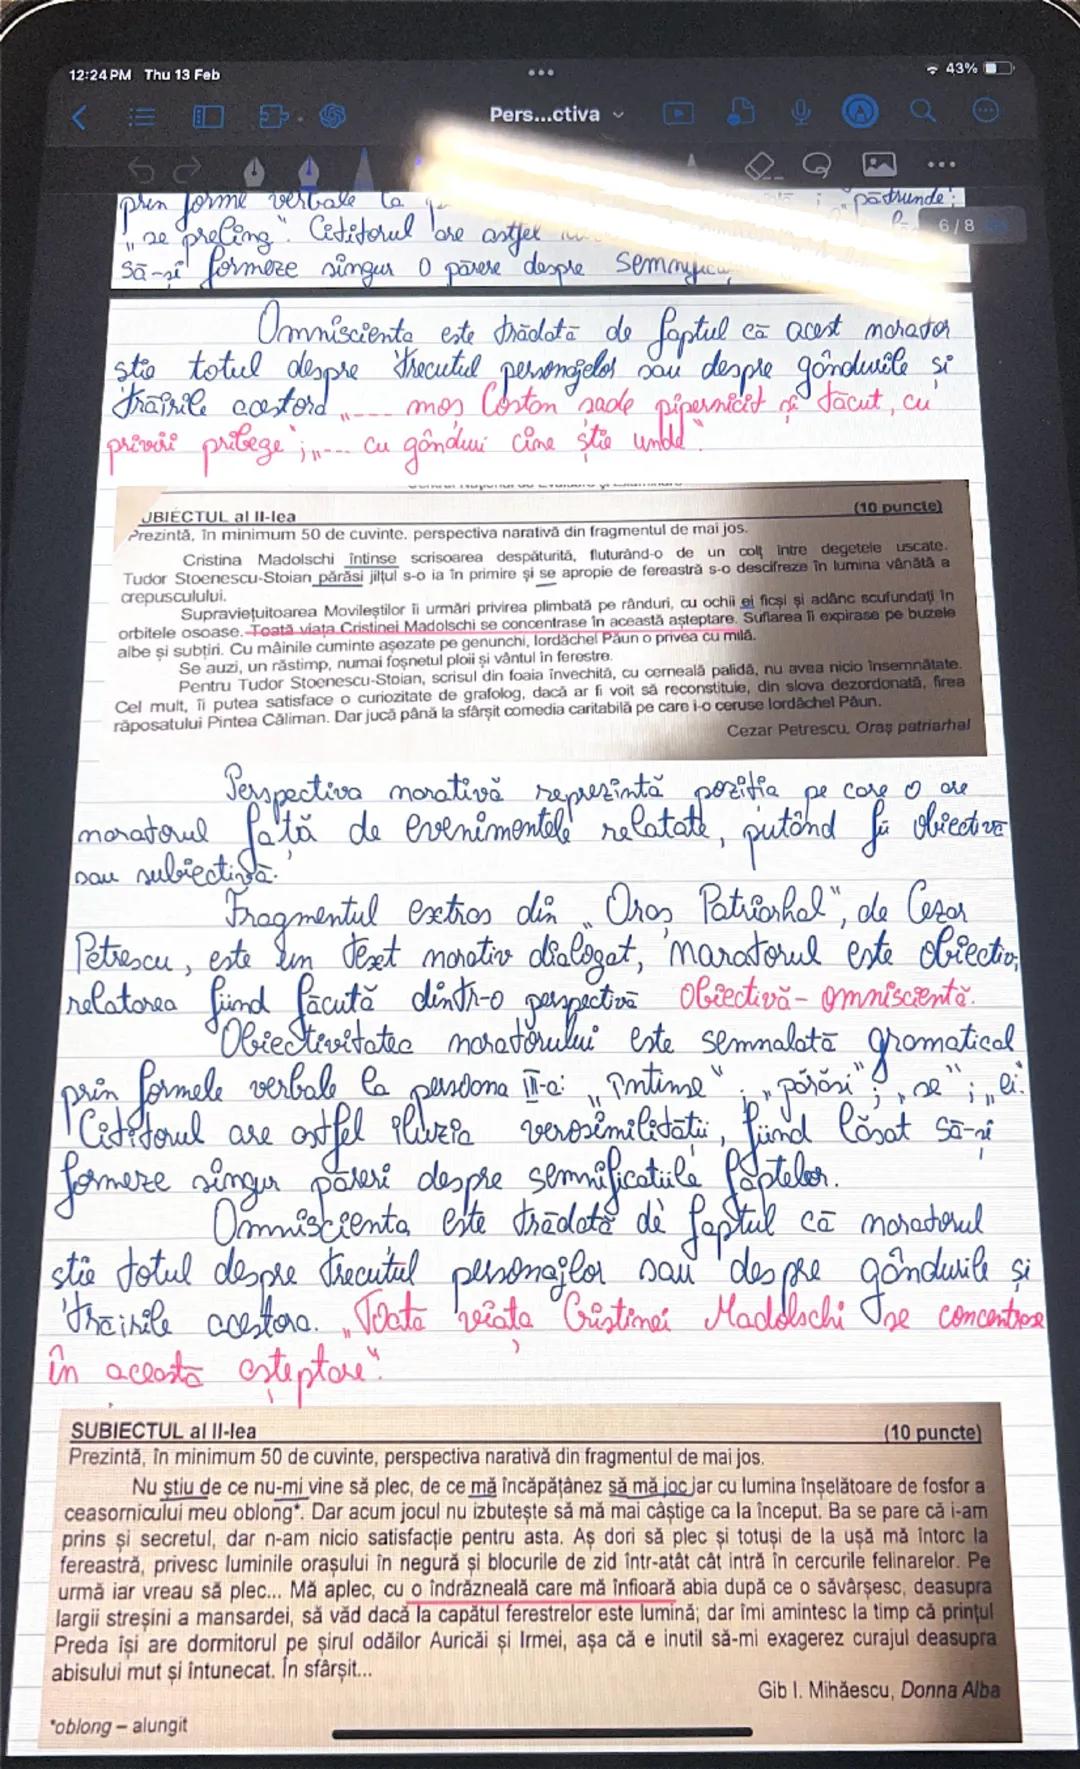 12:24 PM Thu 13 Feb
43%
Pers...ctiva
prin forme verbale la
"pătrunde";
6/8
"se preling". Cititorul are astfel
să-și formeze singur o părere despre
Omnisciența este trădată de faptul că acest narator
știe totul despre trecutul personajelor sau despre gândurile și
trăirile acestora "---- moș Costan sade pipernicit și tăcut, cu
priviri pribege"; "--- cu gânduri cine știe unde".
UBIECTUL al II-lea (10 puncte)
Prezintă, în minimum 50 de cuvinte, perspectiva narativă din fragmentul de mai jos.
Cristina Madolschi întinse scrisoarea despăturită, fluturând-o de un colț între degetele uscate.
Tudor Stoenescu-Stoian părăsi jilțul s-o ia în primire și se apropie de fereastră s-o descifreze în lumina vânătă a
crepusculului.
Supraviețuitoarea Movileștilor îi urmări privirea plimbată pe rânduri, cu ochii ei ficși și adânc scufundați în
orbitele osoase. Toată viața Cristinei Madolschi se concentrase în această așteptare. Suflarea îi expirase pe buzele
albe și subțiri. Cu mâinile cuminte așezate pe genunchi, Iordăchel Păun o privea cu milă.
Se auzi, un răstimp, numai foșnetul ploii și vântul în ferestre.
Pentru Tudor Stoenescu-Stoian, scrisul din foaia învechită, cu cerneală palidă, nu avea nicio însemnătate.
Cel mult, îi putea satisface o curiozitate de grafolog, dacă ar fi voit să reconstituie, din slova dezordonată, firea
răposatului Pintea Căliman. Dar jucă până la sfârșit comedia caritabilă pe care i-o ceruse Iordăchel Păun.
Cezar Petrescu, Oraș patriarhal
Perspectiva narativă reprezintă poziția pe care o are
naratorul față de evenimentele relatate, putând fi obiectivă
sau subiectivă.
Fragmentul extras din "Oraș Patriarhal", de Cezar
Petrescu, este un text narativ dialogat, naratorul este obiectiv,
relatarea fiind făcută dintr-o perspectivă obiectivă - omniscientă.
Obiectivitatea naratorului este semnalată gramatical
prin formele verbale la persoana III-a: "întinse"; "părăsi"; "se"; "ei".
Cititorul are astfel iluzia verosimilității, fiind lăsat să-și
formeze singur păreri despre semnificațiile faptelor.
Omnisciența este trădată de faptul că naratorul
știe totul despre trecutul personajlor sau despre gândurile și
trăirile acestora. "Toată viața Cristinei Madolschi se concentrase
în această așteptare".
SUBIECTUL al II-lea (10 puncte)
Prezintă, în minimum 50 de cuvinte, perspectiva narativă din fragmentul de mai jos.
Nu știu de ce nu-mi vine să plec, de ce mă încăpățânez să mă joc iar cu lumina înșelătoare de fosfor a
ceasornicului meu oblong*. Dar acum jocul nu izbutește să mă mai câștige ca la început. Ba se pare că i-am
prins și secretul, dar n-am nicio satisfacție pentru asta. Aș dori să plec și totuși de la ușă mă întorc la
fereastră, privesc luminile orașului în negură și blocurile de zid într-atât cât intră în cercurile felinarelor. Pe
urmă iar vreau să plec... Mă aplec, cu o îndrăzneală care mă înfioară abia după ce o săvârșesc, deasupra
largii streșini a mansardei, să văd dacă la capătul ferestrelor este lumină; dar îmi amintesc la timp că prințul
Preda își are dormitorul pe șirul odăilor Auricăi și Irmei, așa că e inutil să-mi exagerez curajul deasupra
abisului mut și întunecat. În sfârșit...
Gib I. Mihăescu, Donna Alba
*oblong – alungit